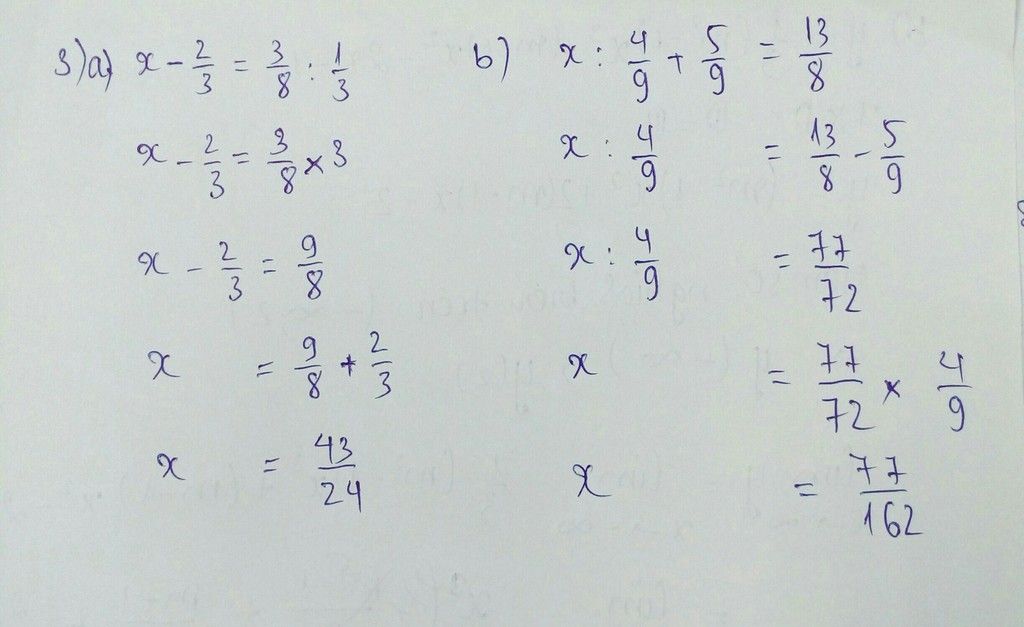 3) a) x - 2/3 = 3/8 : 1/3
x - 2/3 = 3/8 × 3
x - 2/3 = 9/8
x = 9/8 + 2/3
x = 43/24
b) x : 4/9 + 5/9 = 13/8
x : 4/9 = 13/8 - 5/9
x : 4/9 = 77/72
x = 77/72 × 4/9
x = 77/162